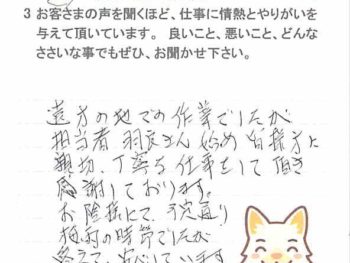 3 お客さまの声を聞くほど、仕事に情熱とやりがいを
与えて頂いています。 良いこと、悪いこと、どんな
ささいな事でもぜひ、お聞かせ下さい。
遠方の地での作業でしたが
担当者 羽良さん始め 皆様方に
親切、丁寧な仕事をして頂き
感謝しております。
お陰様にて、予定通り
梅雨の時節でしたが
終えて、安心しています